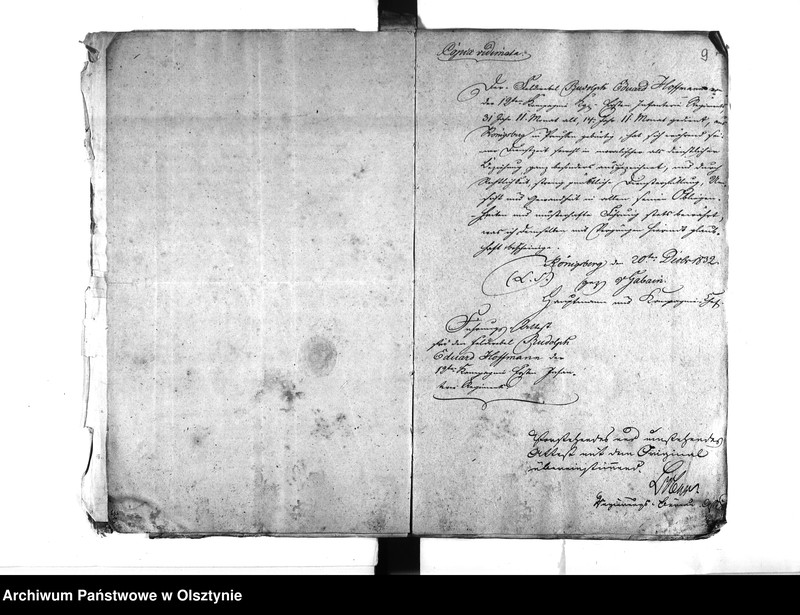 Copia vidimata.
9
Der Feldwebel Rudolph Eduard Hoffmann
der 12ten Kompagnie Ersten Infanterie Regiments
31 Jahr 11 Monat alt, 14 Jahr 11 Monat gedient, aus
Königsberg in Preußen gebürtig, hat sich während sei-
ner Dienstzeit sowohl in moralischer als dienstlicher
Beziehung ganz besonders ausgezeichnet, und durch
Rechtlichkeit, streng pünktliche Diensterfüllung, Um-
sicht und Gewandheit in allen seinen Obliegen-
heiten und musterhafte Führung stets bewährt,
was ich demselben mit Vergnügen hiermit glaub-
haft bescheinige.
Königsberg den 20ten Decbr 1832.
(L.S.) gez. v Gabain.
Hauptmann und Kompagnie
Führungs Attest
für den Feldwebel Rudolph
Eduard Hoffmann der
12ten Kompagnie Ersten Infan-
terie Regiments
Vorstehendes und umstehendes
Attest mit dem Original
übereinstimmend
Regierungs
Archiwum Państwowe w Olsztynie